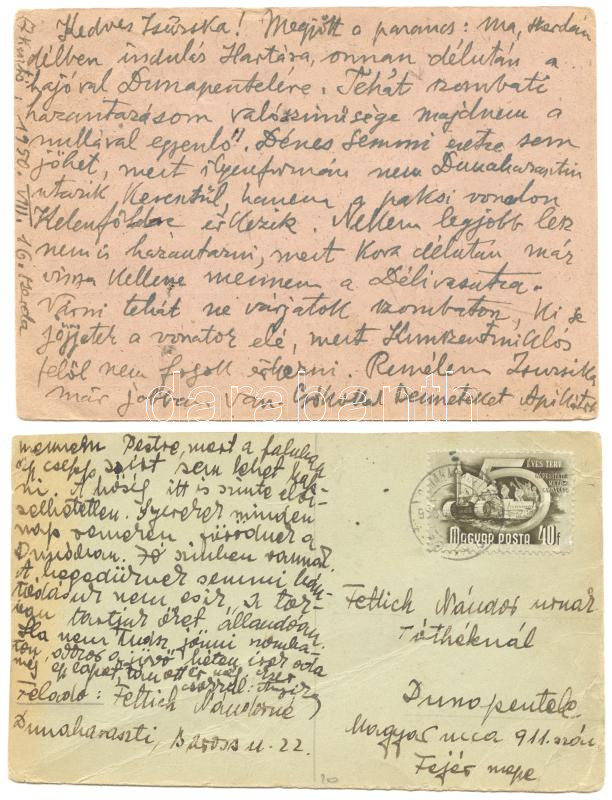 Kedves Zsürska! Megjött a parancs: ma, szerdán
délben indulás Hartára, onnan délután a
hajóval Dunapentelére. Tehát szombati
hazautazásom valószinüsége majdnem a
nullával egyenlő. Dénes semmi esetre sem
jöhet, mert ilyenformán nem Dunaharasztin
utazik keresztül, hanem a paksi vonalon
Kelenföldre érkezik. Nekem legjobb lesz
nem is hazautazni, mert kora délután már
vissza kellene mennem a Délivasutra.
Várni tehát ne várjatok szombaton, ki se
jöjjetek a vonatok elé, mert Kunszentmiklós
felől nem fogok érkezni. Remélem Zsuzsika
már jobban van Csókollak Benneteket Apikátok
1950. VIII. 16. szerda
darabanth
mennem Pestre, mert a faluban
egy csepp zsirt sem lehet kap-
ni. A hőség itt is szinte elvi-
selhetetlen. Gyerekek minden
nap veremben fürödnek a
Dunában. Jó szinben vannak.
A hegedűnek semmi bán-
tódása nem esik, a tok-
ban tartjuk őket állandóan.
Ha nem tudsz jönni szomba-
ton, akkor a jövő héten
csókol:
Feladó: Fettich Nándorné
Dunaharaszti, Baross u. 22.
5 ÉVES TERV
MAGYAR POSTA 40f
Fettich Nándor urnak
Tóthéknál
Dunapentele
Magyar ucca 911. szám
Fejér megye